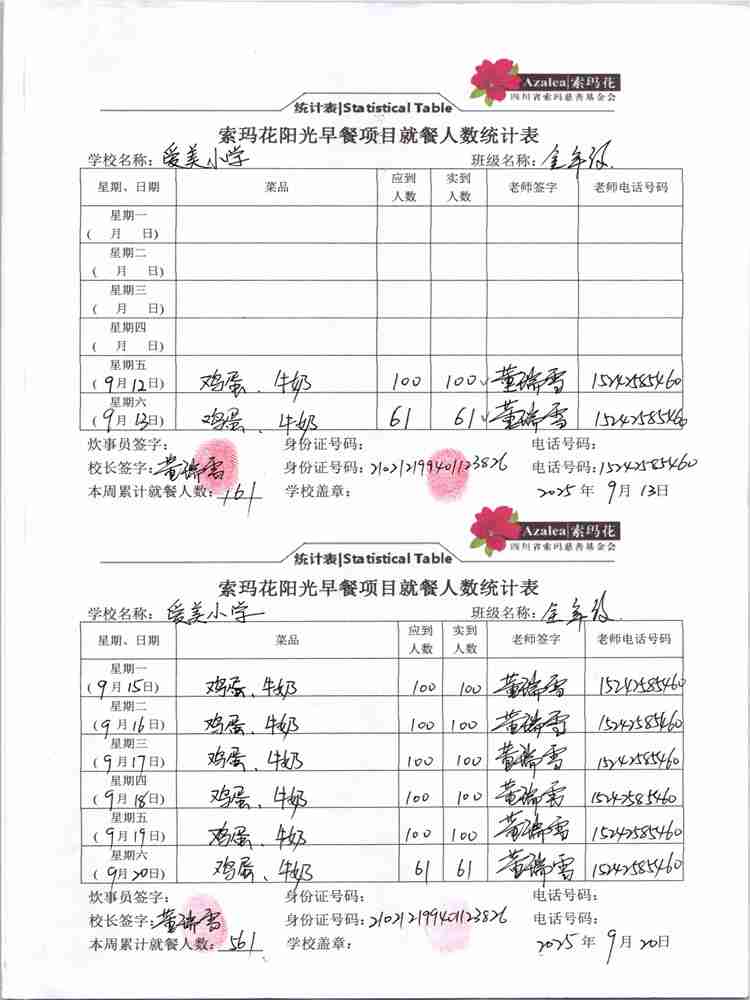 Azalea 索玛花
四川省索玛慈善基金会
统计表|Statistical Table
索玛花阳光早餐项目就餐人数统计表
学校名称: 爱美小学 班级名称: 全年级
星期、日期 菜品 应到人数 实到人数 老师签字 老师电话号码
星期一
( 月 日)
星期二
( 月 日)
星期三
( 月 日)
星期四
( 月 日)
星期五
(9月12日) 鸡蛋、牛奶 100 100 董瑞雪 15242585460
星期六
(9月13日) 鸡蛋、牛奶 61 61 董瑞雪 15242585460
炊事员签字: 身份证号码: 电话号码:
校长签字: 董瑞雪 身份证号码: 210212199401123826 电话号码: 15242585460
本周累计就餐人数: 161 学校盖章: 2025年 9月 13日
Azalea 索玛花
四川省索玛慈善基金会
统计表|Statistical Table
索玛花阳光早餐项目就餐人数统计表
学校名称: 爱美小学 班级名称: 全年级
星期、日期 菜品 应到人数 实到人数 老师签字 老师电话号码
星期一
(9月15日) 鸡蛋、牛奶 100 100 董瑞雪 15242585460
星期二
(9月16日) 鸡蛋、牛奶 100 100 董瑞雪 15242585460
星期三
(9月17日) 鸡蛋、牛奶 100 100 董瑞雪 15242585460
星期四
(9月18日) 鸡蛋、牛奶 100 100 董瑞雪 15242585460
星期五
(9月19日) 鸡蛋、牛奶 100 100 董瑞雪 15242585460
星期六
(9月20日) 鸡蛋、牛奶 61 61 董瑞雪 15242585460
炊事员签字: 身份证号码: 电话号码:
校长签字: 董瑞雪 身份证号码: 210212199401123826 电话号码:
本周累计就餐人数: 561 学校盖章: 2025年 9月 20日